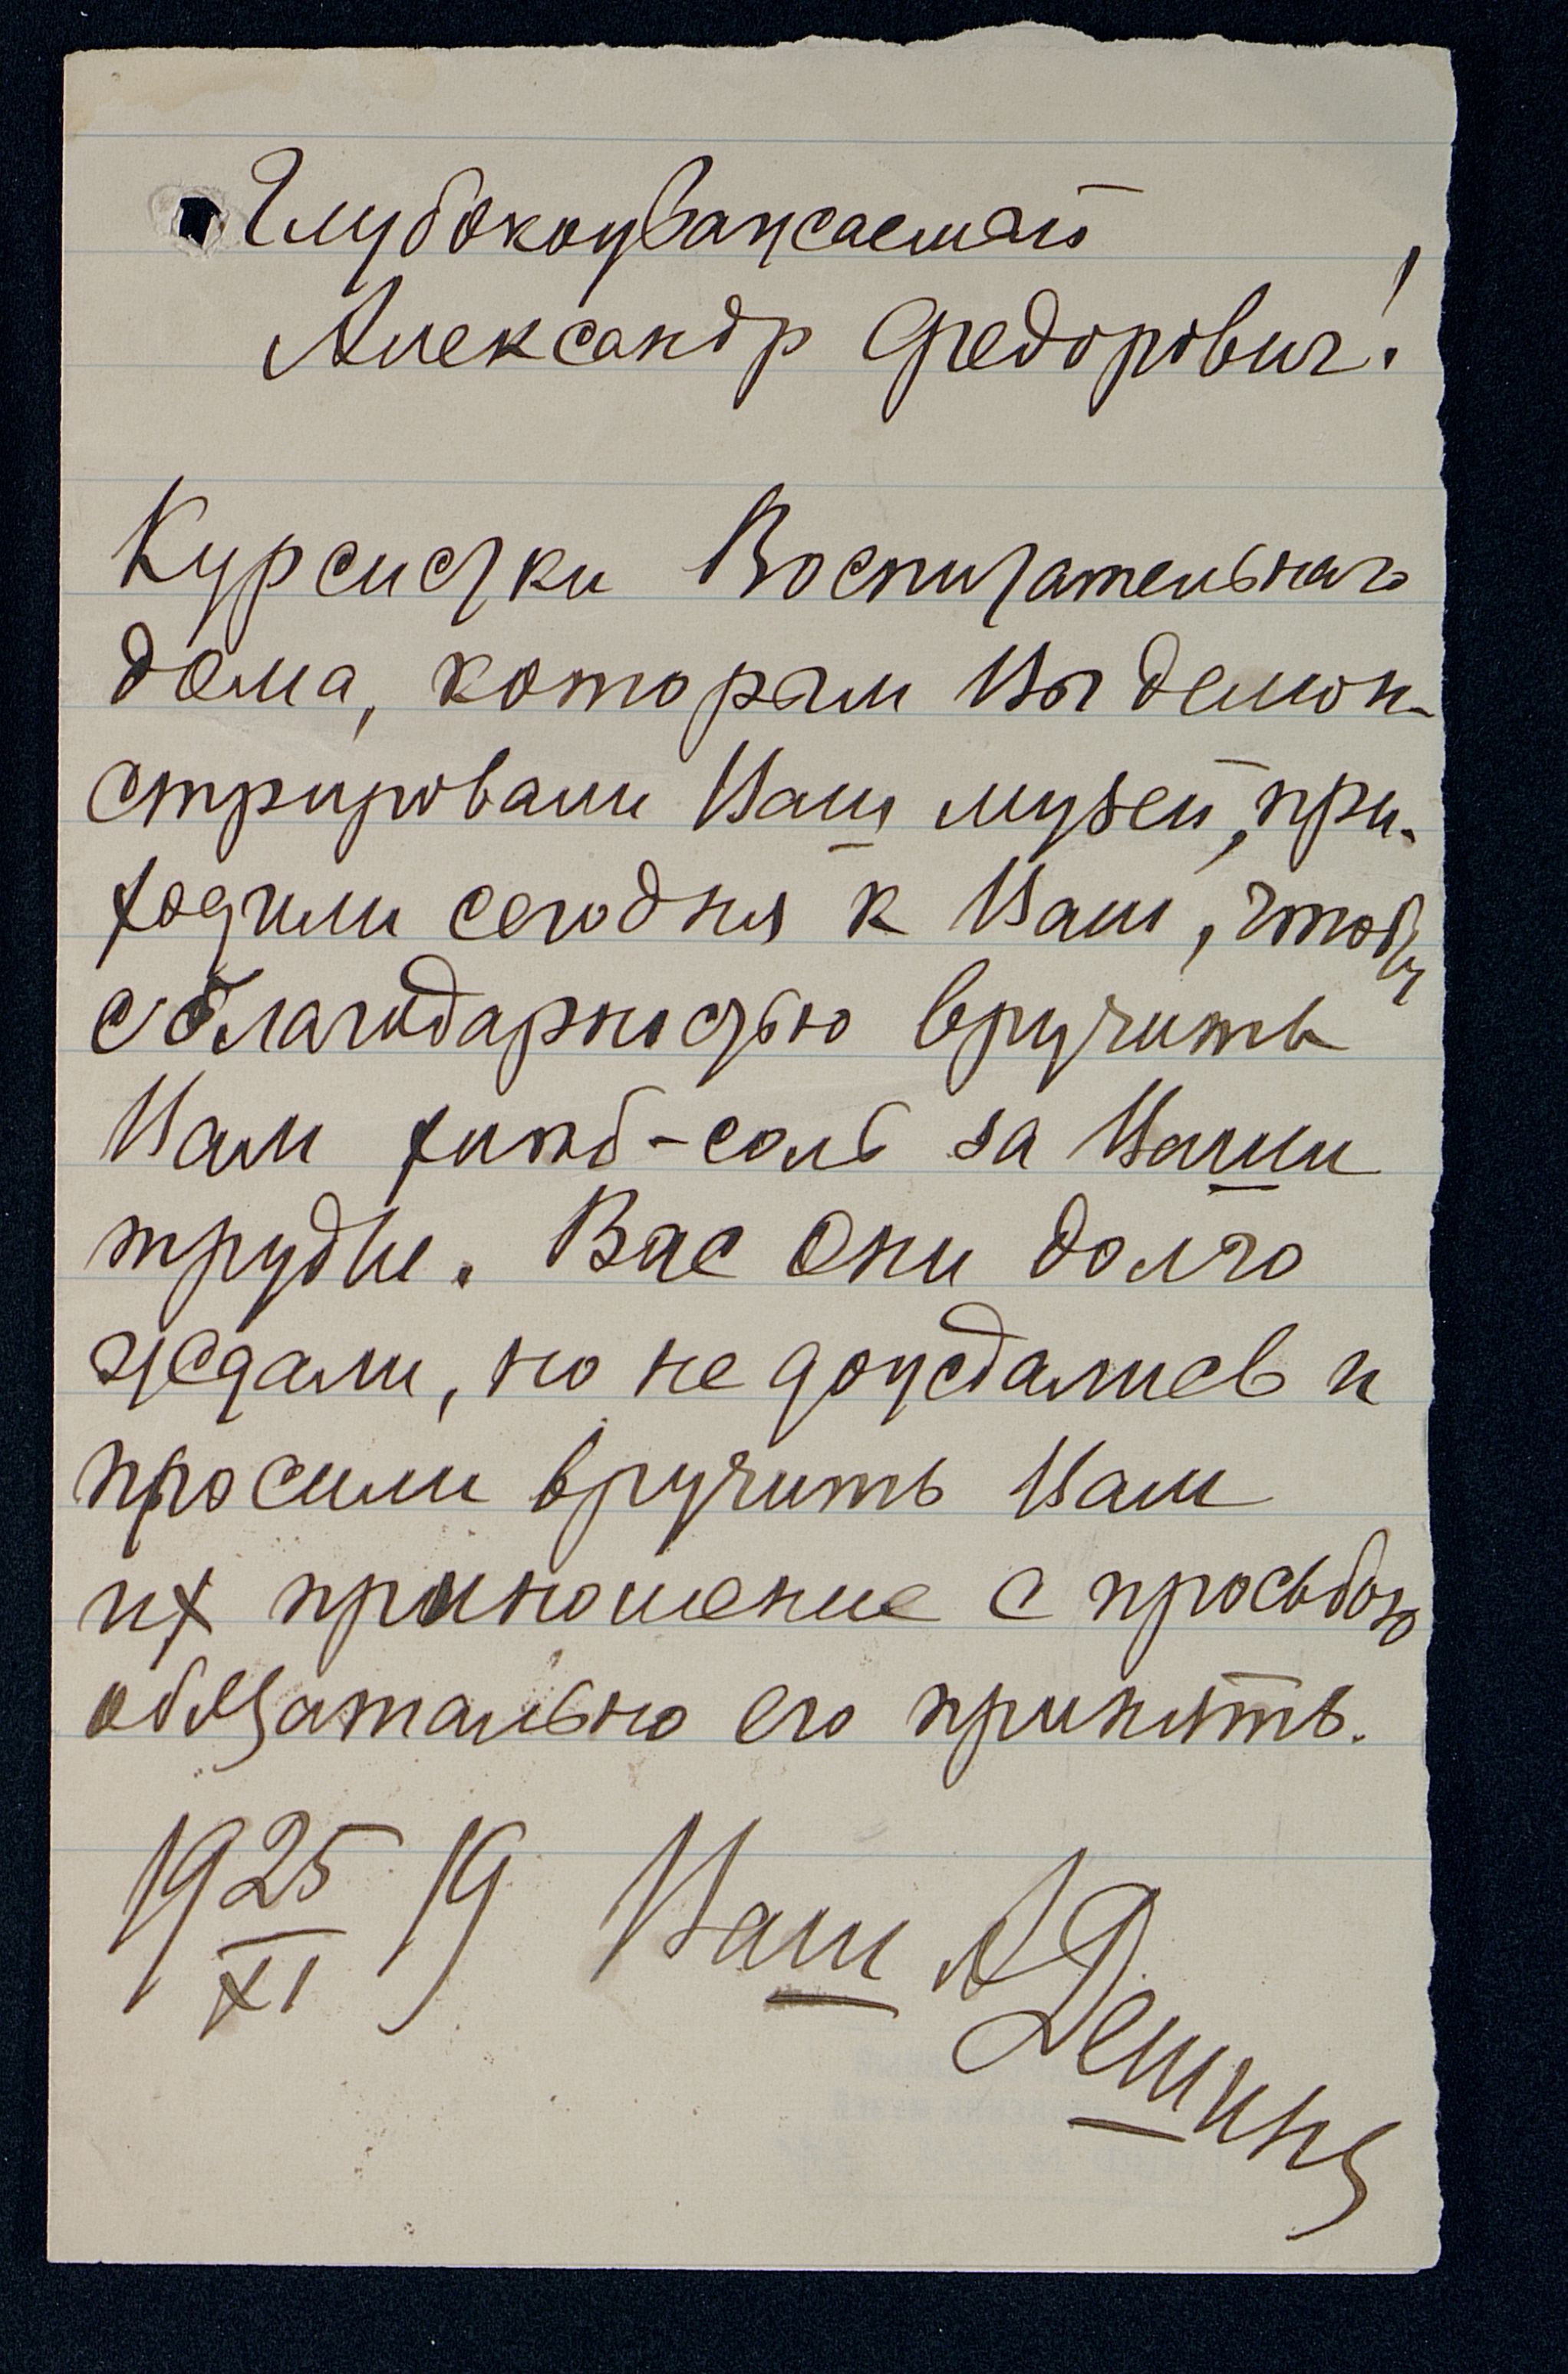 Глубокоуважаемый
Александр Федорович!
Курсистки Воспитательнаго
дома, которым Вы демон-
стрировали Ваш музей, при-
ходили сегодня к Вам, чтобы
с благодарностью вручить
Вам хлеб-соль за Ваши
труды. Вас они долго
ждали, но не дождались и
просили вручить Вам
их приношение с просьбою
обязательно его принять.
19 25/XI 19 Ваш А Дешин